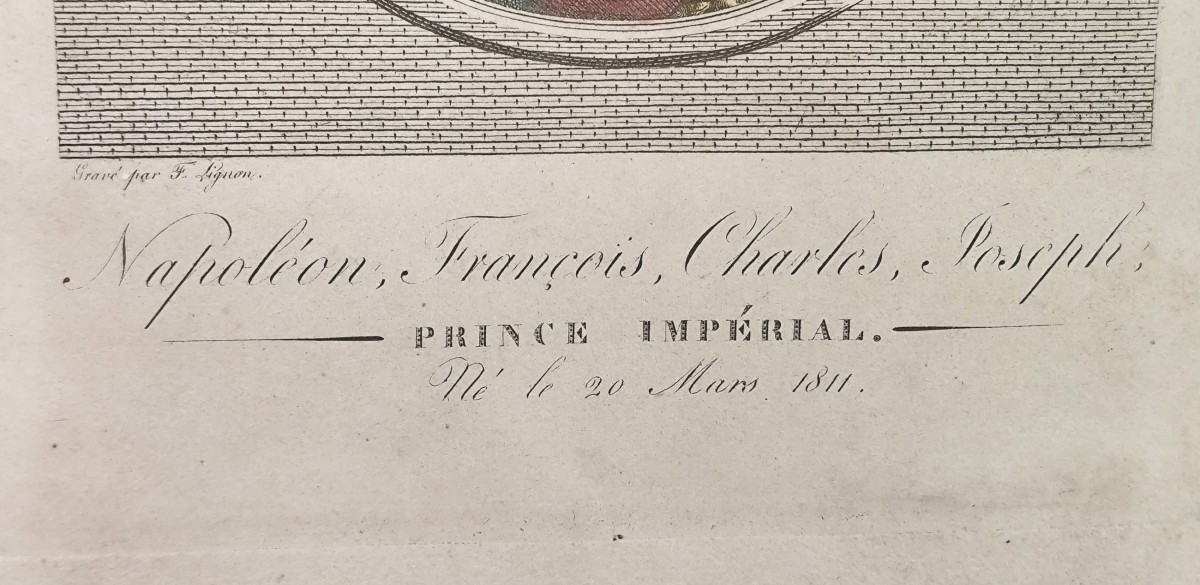 Gravé par F. Lignon.
Napoléon, François, Charles, Joseph,
PRINCE IMPÉRIAL.
Né le 20 Mars 1811.